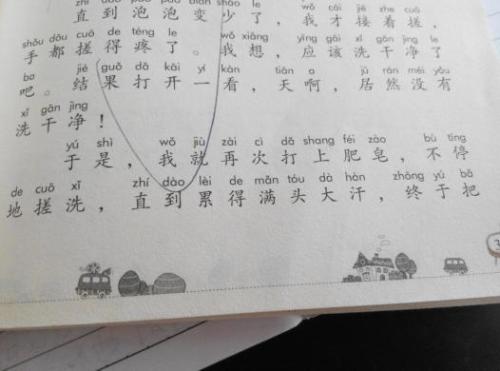 zhí dào pào pào biàn shǎo le wǒ cái jiē zhe cuō
直到泡泡变少了，我才接着搓，
shǒu dōu cuō de téng le wǒ xiǎng yīng gāi xǐ gān jìng le
手都搓得疼了。我想，应该洗干净了
ba jié guǒ dǎ kāi yí kàn tiān a jū rán méi yǒu
吧。结果打开一看，天啊，居然没有
xǐ gān jìng
洗干净！
yú shì wǒ jiù zài cì dǎ shang féi zào bù tíng
于是，我就再次打上肥皂，不停
de cuō xǐ zhí dào lèi de mǎn tóu dà hàn zhōng yú bǎ
地搓洗，直到累得满头大汗，终于把